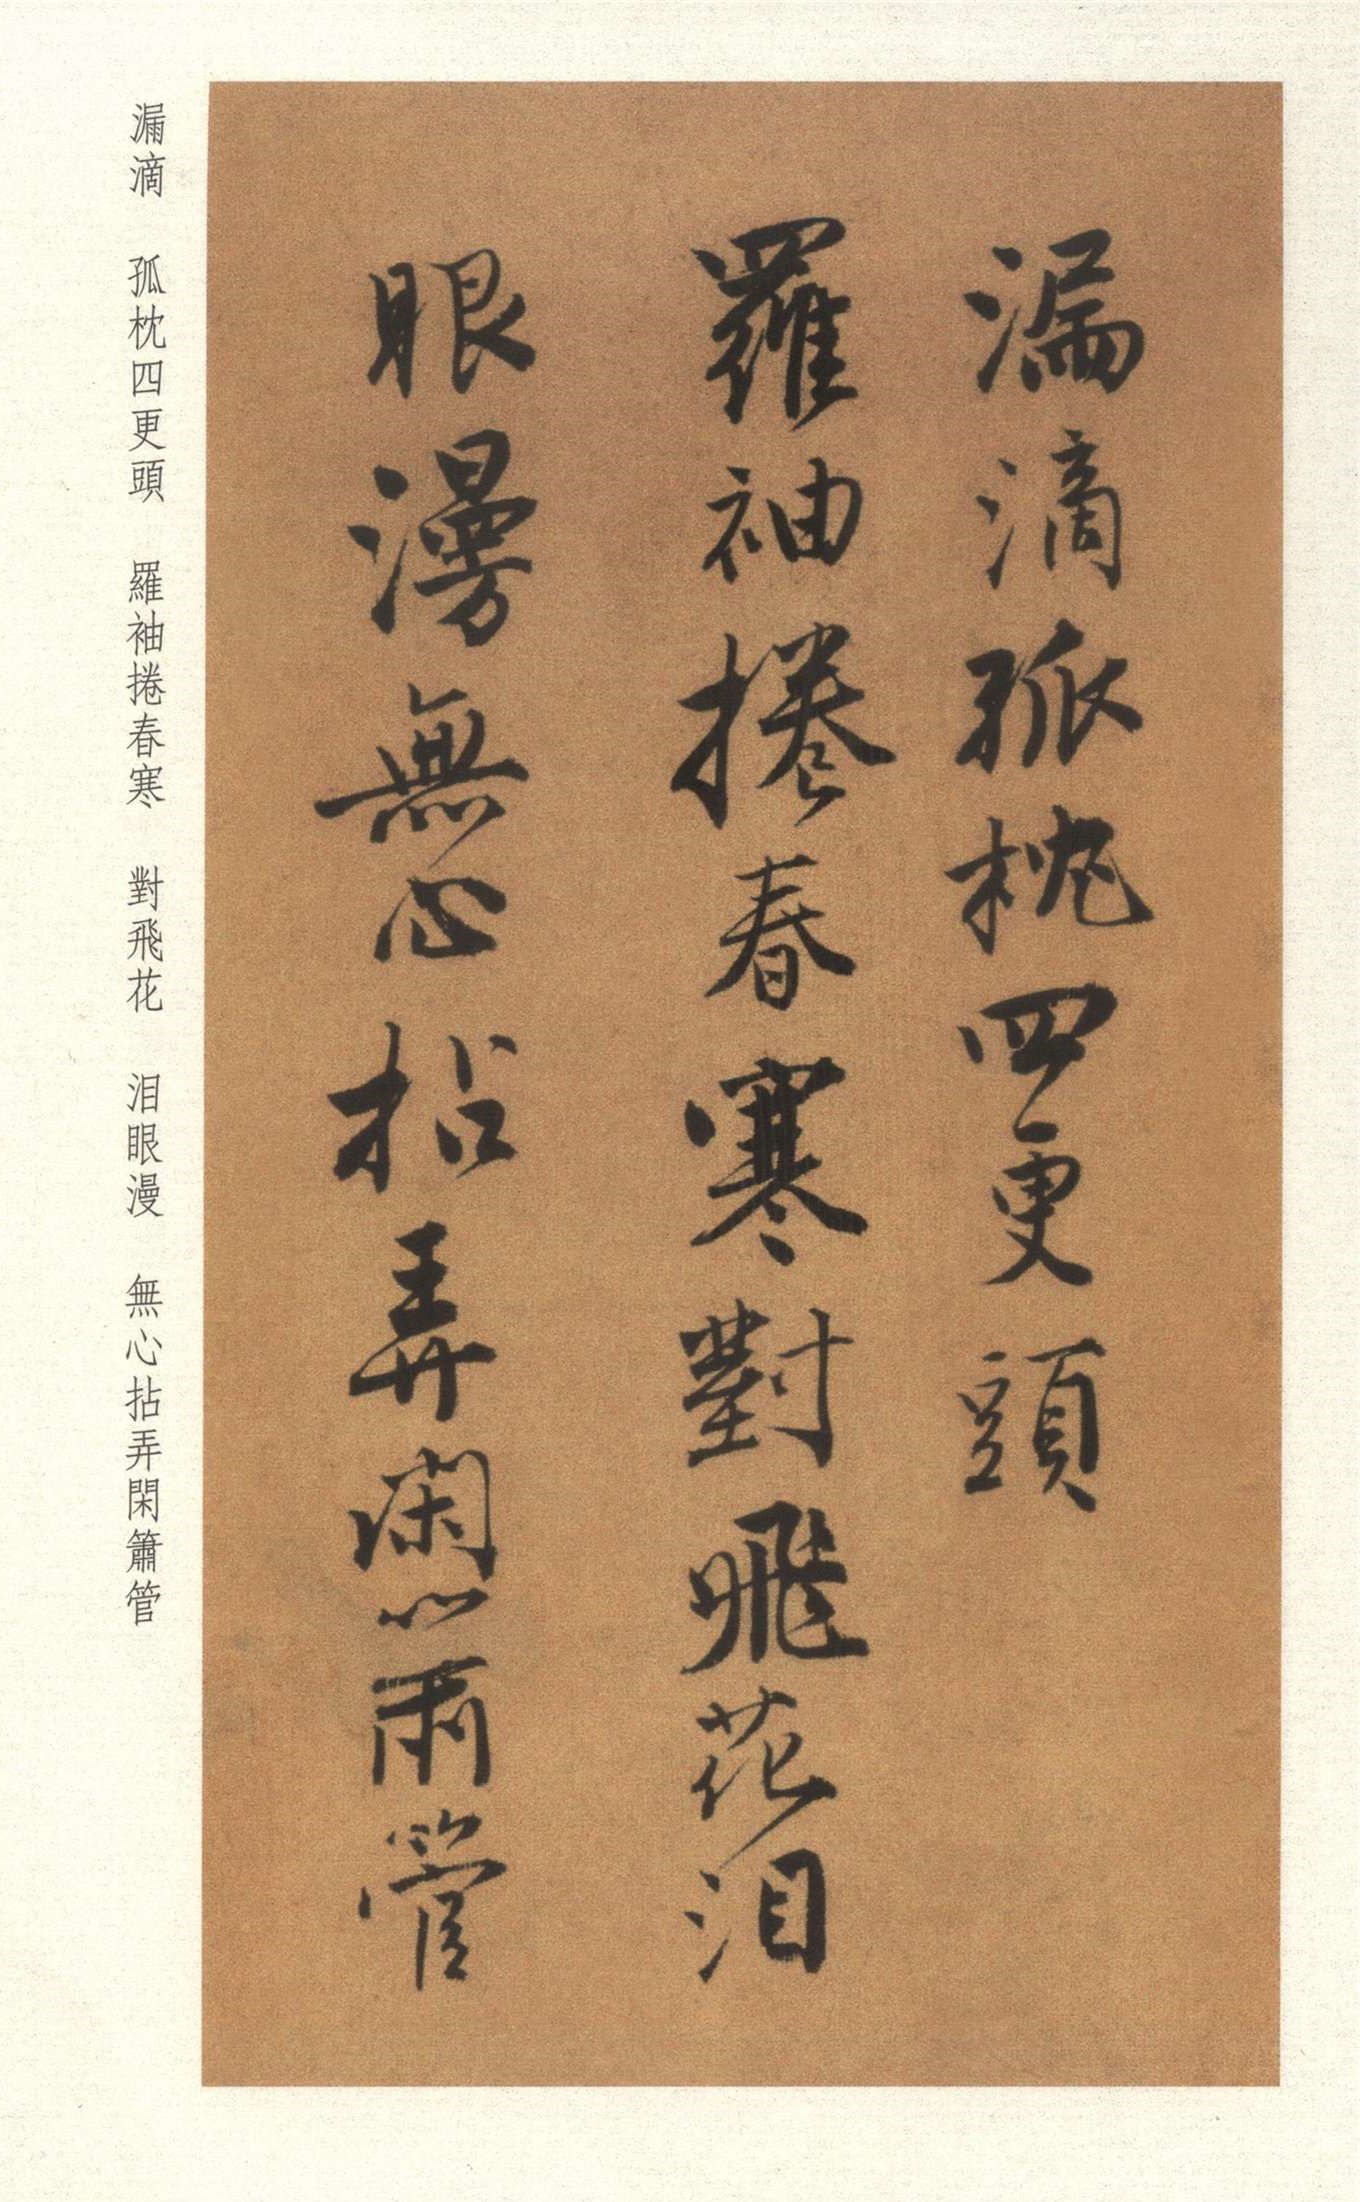 漏滴孤枕四更頭
羅袖捲春寒對飛花泪
眼漫無心拈弄閑簫管
漏滴　孤枕四更頭　羅袖捲春寒　對飛花　泪眼漫　無心拈弄閑簫管